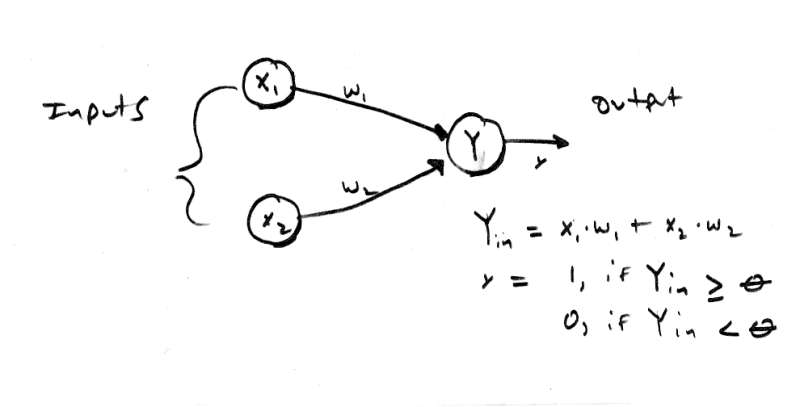 Inputs
x₁
w₁
Y
y
Output
w₂
x₂
Yin = x₁·w₁ + x₂·w₂
y = 1, if Yin ≥ θ
0, if Yin < θ